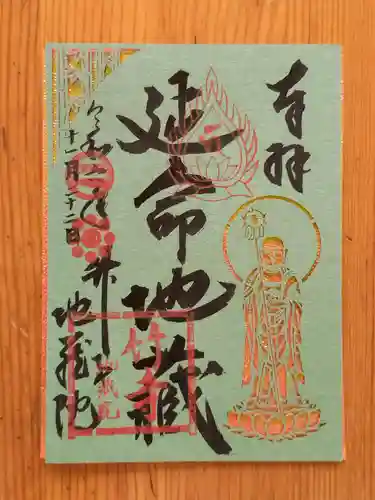 奉拝
延命地蔵
令和二年
十一月二十二日
竹寺
地蔵院
地蔵院